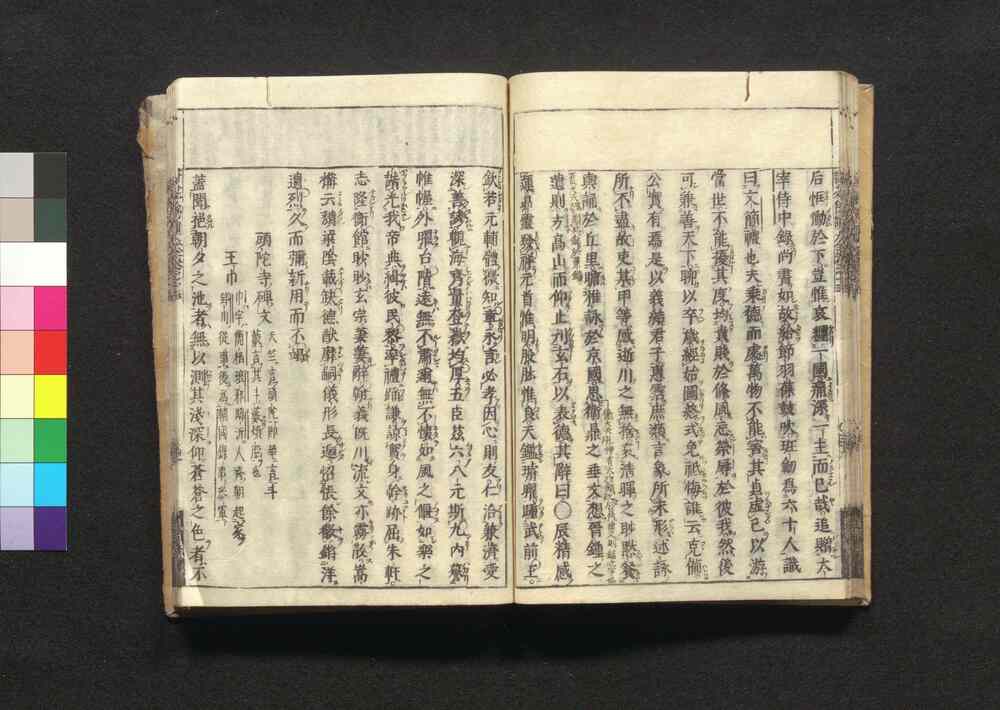 后恆慟於下豈惟哀纏一國痛深一主而已哉追贈太
宰侍中錄尚書如故給節羽葆鼓吹班劒爲六十人諡
曰文簡禮也夫乘德而處萬物不能害其貞虛己以游
當世不能擾其度均貴賤於條風忘榮辱於彼我然後
可兼善天下聊以卒歲經始圖終式免祗悔誰云克備
公實有焉是以義結君子惠霑庶類言象所未形述詠
所不盡故吏某甲等感逝川之無捨哀清暉之眇默餐
輿誦於丘里瞻雅詠於京國思衛鼎之垂文想晉鍾之
遺則方高山而仰止刊玄石以表德其辭曰〇辰精感
運昴靈發祥元首惟明股肱惟良天鑒璿曜踵武前王
欽若元輔體微知章永言必孝因心則友仁洽兼濟愛
深善誘觀海齊量登嶽均厚五臣茲六八元斯九內謩
帷幄外曜台階遠無不肅邇無不懷如風之偃如樂之
諧光我帝典緝彼民黎率禮蹈謙諒實身幹跡屈朱軒
志隆衡館眇眇玄宗萋萋辭翰義既川流文亦霧散嵩
構云頹梁陰載缺德猷靡嗣儀形長遞怊悵餘徽鏘洋
遺烈久而彌新用而不竭
頭陀寺碑文
天竺言頭陀此即華言斗
藪言其斗藪煩惱也
王巾
巾字簡栖瑯邪臨沂人齊朝起家
郢州從事後爲
蓋聞挹朝夕之池者無以測其淺深仰蒼蒼之色者不